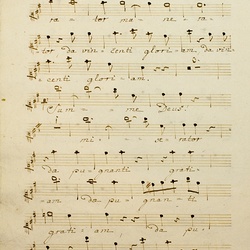 ra - tor mi - se - ra -
tor da vin - centi glori - am da vin -
centi glori - am.
Sum - me Deus
mi - serator
da pu - gnanti grati -
am da pu - gnan - ti
grati - am da pu -